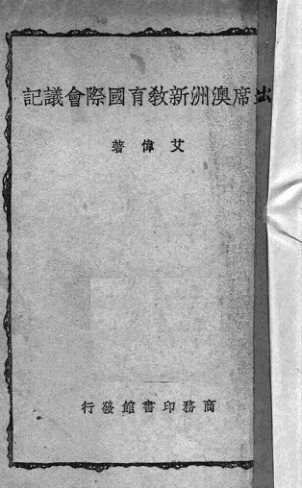 出席澳洲新敎育國際會議記
艾偉著
商務印書館發行